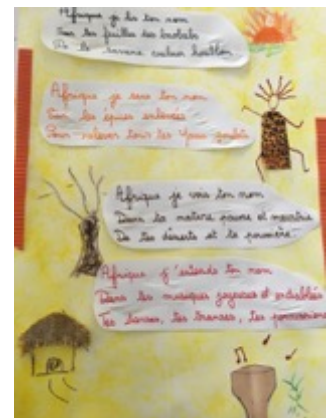 Afrique je lis ton nom
Sur les feuilles des baobabs
De la savane couleur
Afrique je sens ton nom
Dans les épices
Pour relever tous les
Afrique je vois ton nom
Dans la nature pauvre et meurtrie
De tes déserts et ta poussière
Afrique j'entends ton nom
Dans les musiques joyeuses et endiablées
Tes danses, tes transes, tes percussions